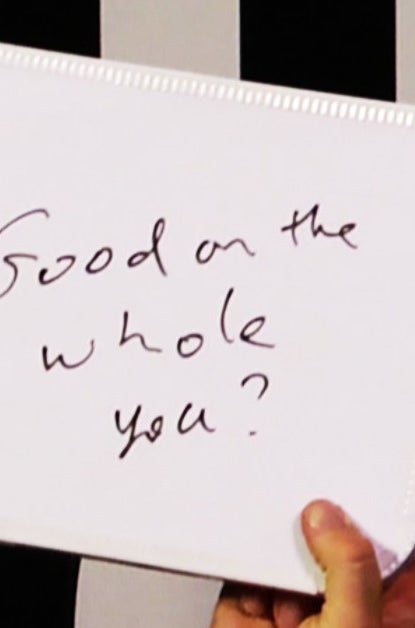 Good on the
whole
you?